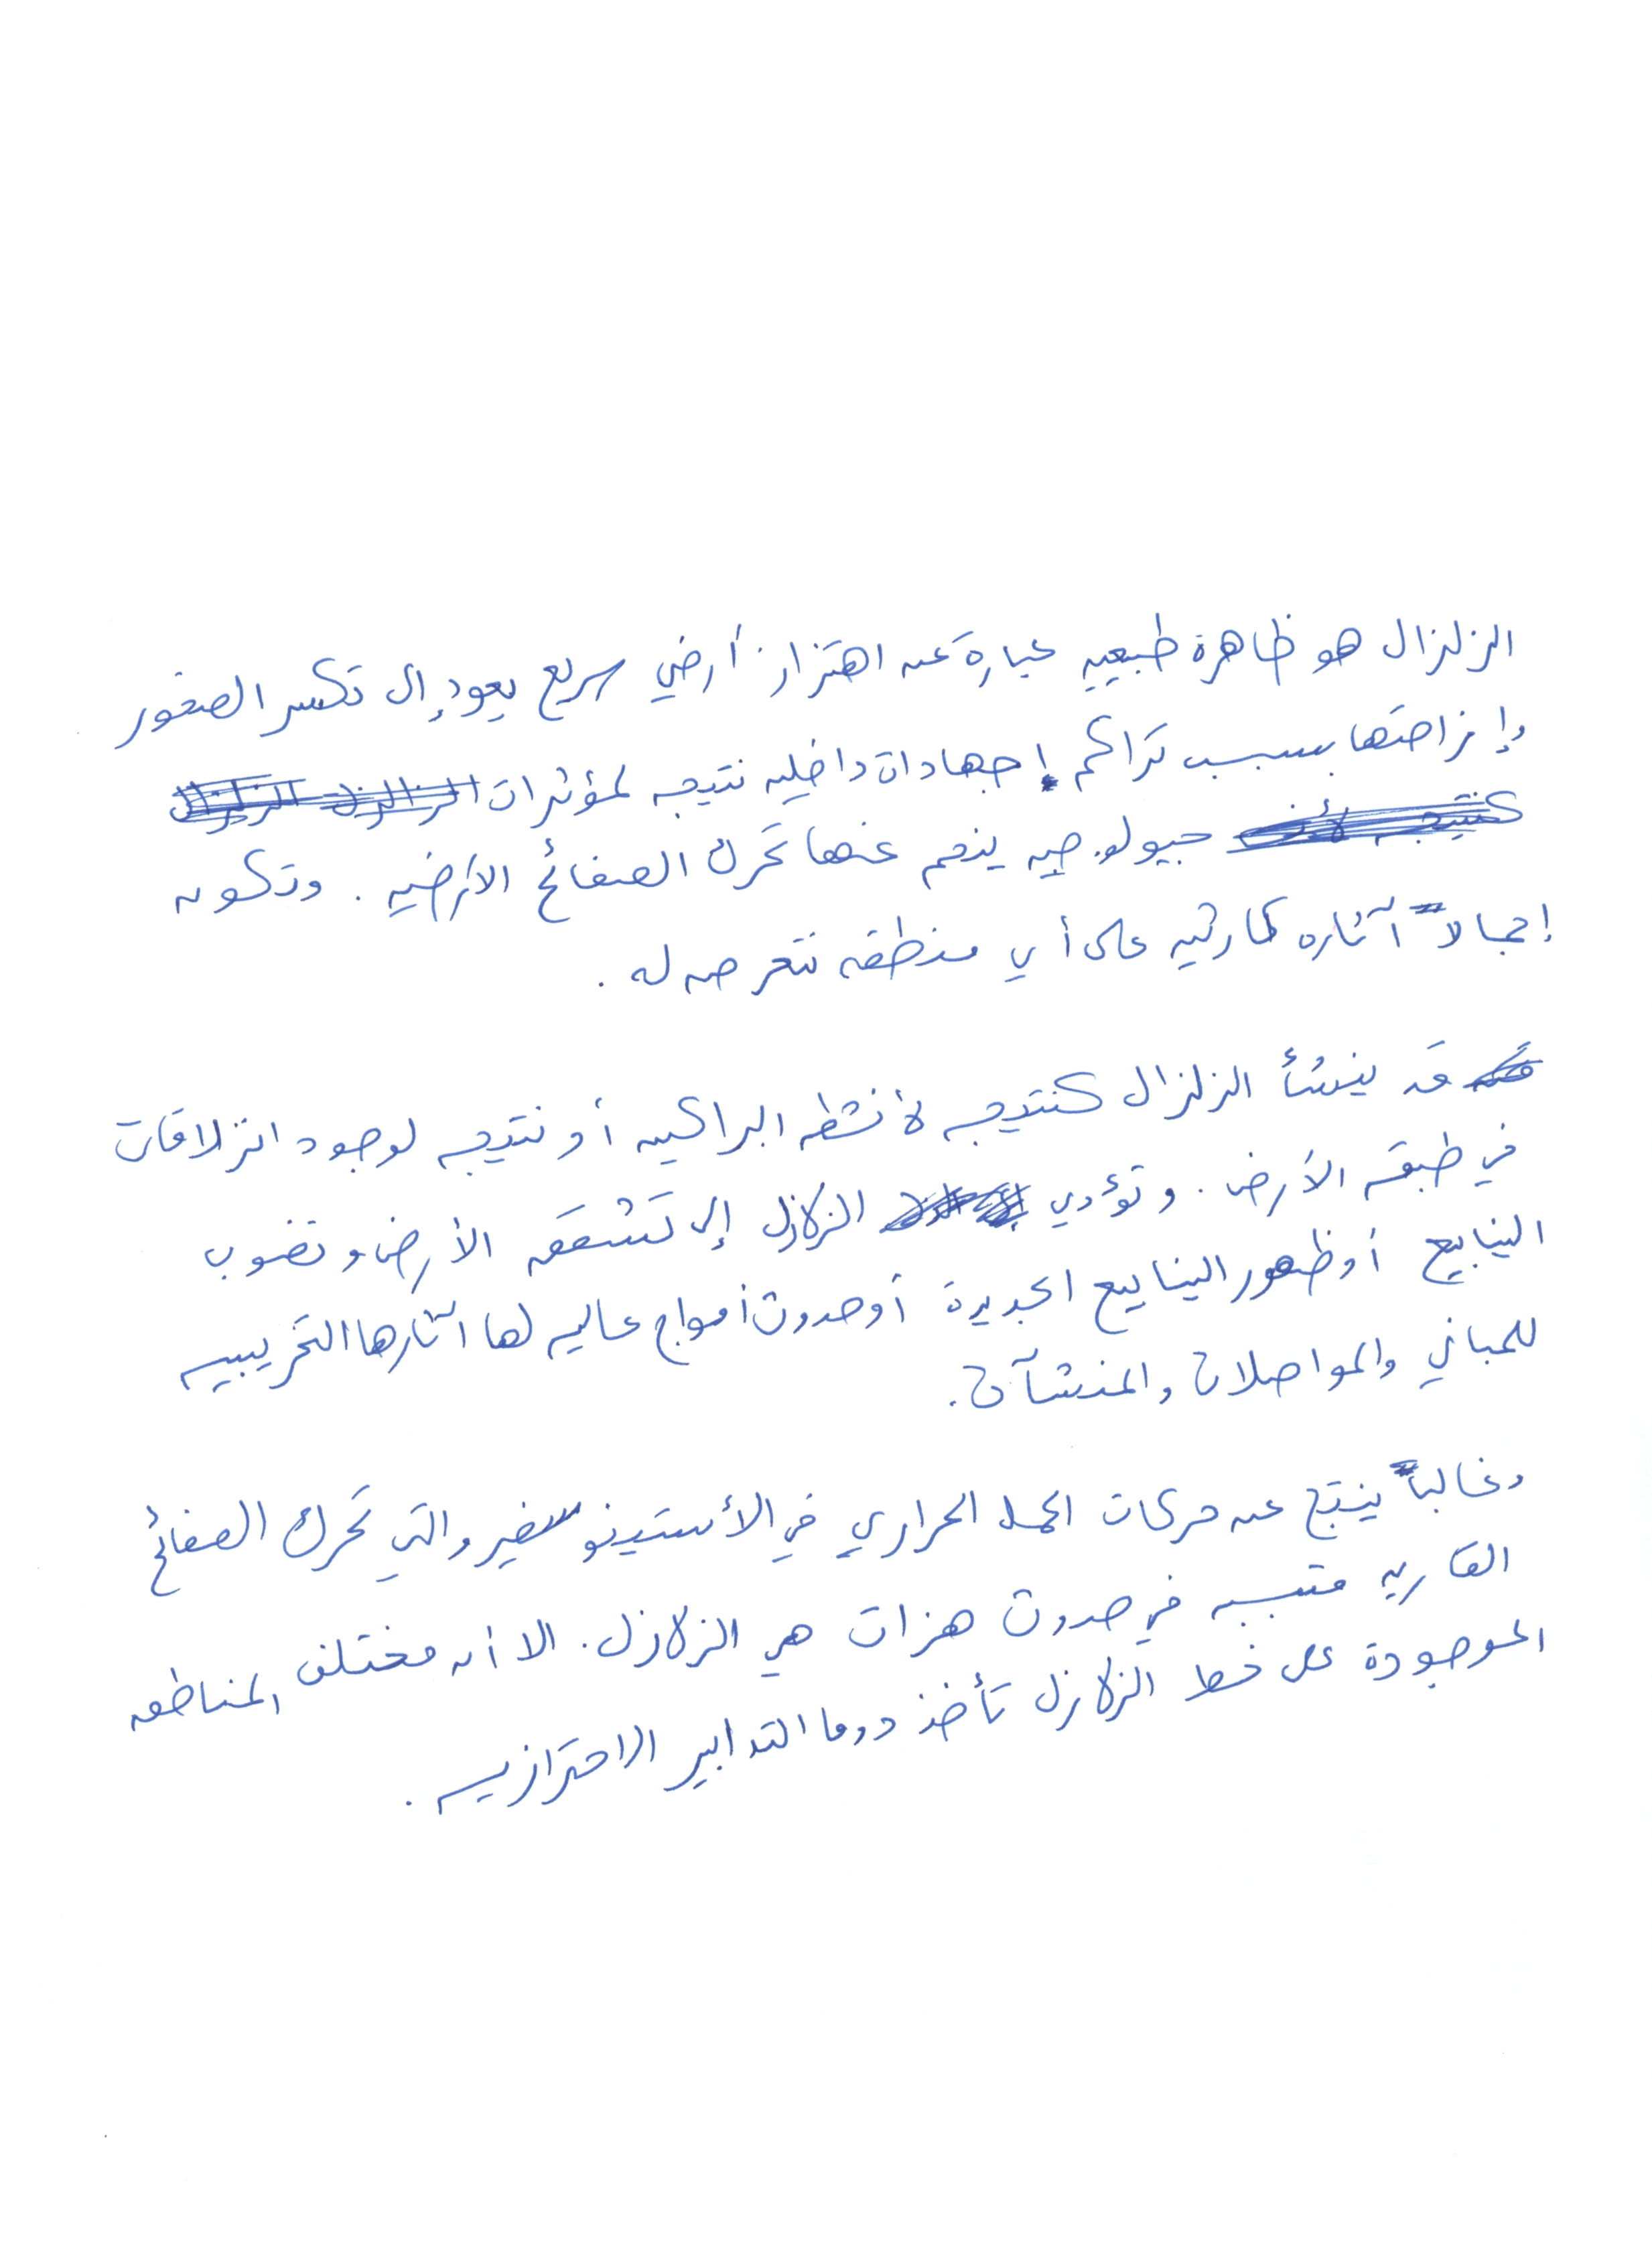 الزلزال هو ظاهرة طبيعيه عبارة عن اهتزاز أرضي سريع يعود إلى تكسر الصخور
وإزاحتها بسبب تراكم إجهادات داخليه نتيجه لمؤثرات
جيولوجيه ينجم عنها تحرك الصفائح الأرضيه . وتكون
إجمالاً آثاره كارثيه على أي منطقه تتعرض له .
قد ينشأ الزلزال كنتيجه لأنشطه البراكين أو نتيجه لوجود انزلاقات
في طبقه الأرض . وتؤدي الزلازل إلى تشقق الأرض و نضوب
الينابيع أو ظهور الينابيع الجديدة أو حدوث أمواج عاليه لها آثارها التخريبيه
للمباني والمواصلات والمنشآت .
وغالباً ينتج عن حركات الحمل الحراري في الأستينوسفير والتي تحرك الصفائح
القاريه متسببه في حدوث هزات هي الزلازل . الا أن مختلف المناطق
الموجودة على خط الزلازل تأخذ دوما التدابير الاحترازيه .